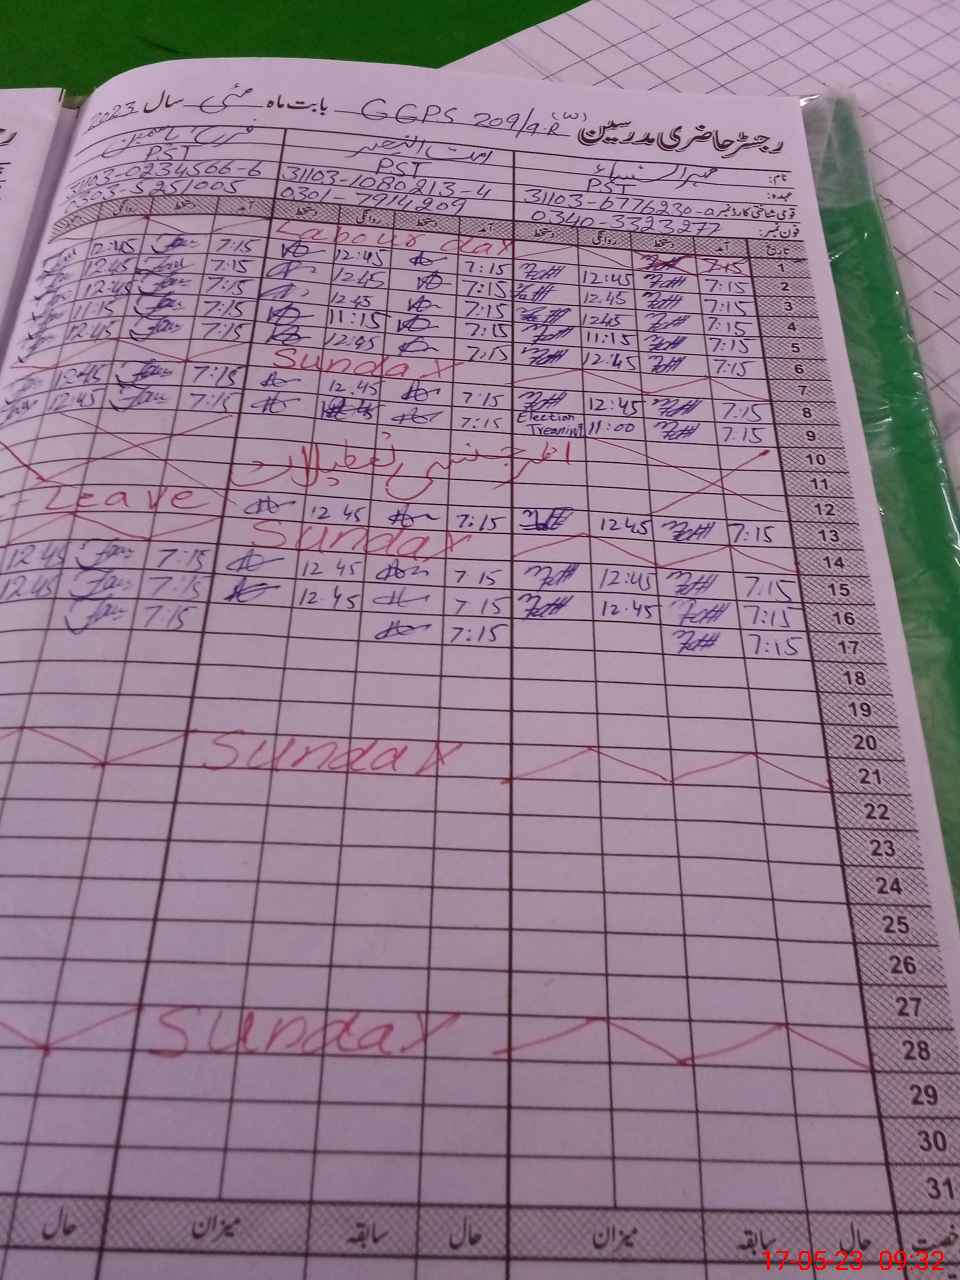 رجسٹر حاضری مدرسین GGPS 209/9.R (س) بابت ماہ مئی سال 2023
نام: مہر النساء امت النصیر
عہدہ: PST PST PST
قومی شناختی کارڈ نمبر 31103-6776230-0 31103-1080213-4 31103-0234566-6
فون نمبر: 0340-3323277 0301-7914209 0303-5251005
تاریخ آمد دستخط روانگی دستخط آمد دستخط روانگی دستخط آمد دستخط روانگی
1 7:15 Labour day
2 7:15 12:45 7:15 12:45 7:15 12:45
3 7:15 12.45 7:15 12.45 7:15 12:45
4 7:15 1245 7:15 12.45 7:15 12:45
5 7:15 11:15 7:15 11:15 7:15 11:15
6 7:15 12:45 7:15 12:45 7:15 12:45
7 Sunday
8 7:15 12:45 7:15 12.45 7:15 12:45
9 7:15 11:00 Election Treaning 7:15 7:15 12:45
10
11 ایمرجنسی تعطیلات
12
13 7:15 1245 7:15 12 45 Leave
14 Sunday
15 7.15 12:45 7 15 12 45 7:15 12:45
16 7:15 12.45 7 15 12.45 7:15 12:45
17 7:15 7:15 7:15
18
19
20
21 Sunday
22
23
24
25
26
27
28 Sunday
29
30
31
رخصت حال سابقہ میزان حال سابقہ میزان حال
17-05-23 09:32